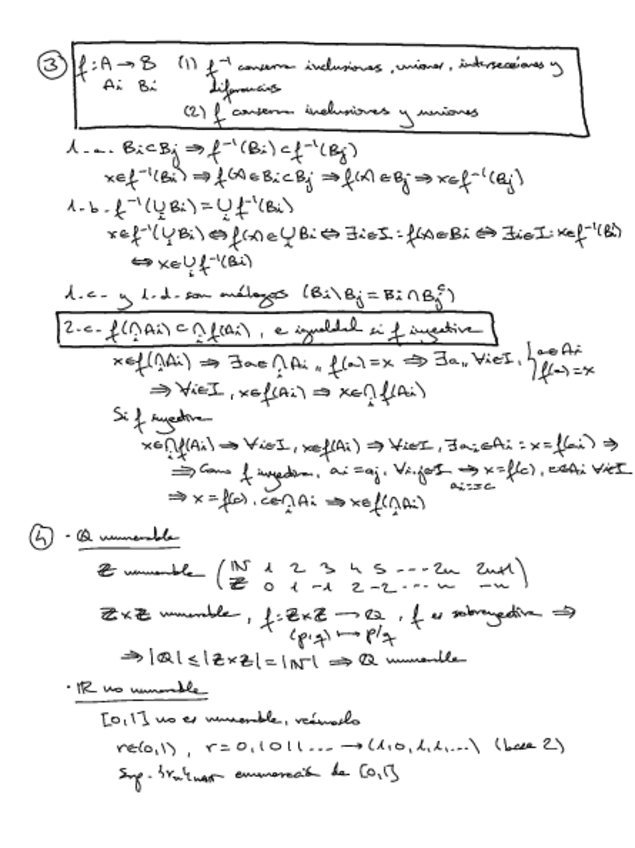 ③ f: A → B (1) f⁻¹ conserva inclusiones, uniones, intersecciones y
Ai Bi diferencias
(2) f conserva inclusiones y uniones
1-a- Bi⊂Bj ⇒ f⁻¹(Bi)⊂f⁻¹(Bj)
x∈f⁻¹(Bi) ⇒ f(x)∈Bi⊂Bj ⇒ f(x)∈Bj ⇒ x∈f⁻¹(Bj)
1-b- f⁻¹(∪ᵢBi) = ∪ᵢf⁻¹(Bi)
x∈f⁻¹(∪ᵢBi) ⇔ f(x)∈∪ᵢBi ⇔ ∃i∈I: f(x)∈Bi ⇔ ∃i∈I: x∈f⁻¹(Bi)
⇔ x∈∪ᵢf⁻¹(Bi)
1-c- y 1-d- son análogos (Bi\Bj = Bi∩Bjᶜ)
2-c- f(∩ᵢAi) ⊂ ∩ᵢf(Ai), e igualdad si f inyectiva
x∈f(∩ᵢAi) ⇒ ∃a∈∩ᵢAi,, f(a)=x ⇒ ∃a,, ∀i∈I, { a∈Ai
f(a)=x
⇒ ∀i∈I, x∈f(Ai) ⇒ x∈∩ᵢf(Ai)
Si f inyectiva
x∈∩ᵢf(Ai) ⇒ ∀i∈I, x∈f(Ai) ⇒ ∀i∈I, ∃ai∈Ai: x=f(ai) ⇒
⇒ Como f inyectiva, ai=aj, ∀i,j∈I ⇒ x=f(c), c∈Ai ∀i∈I
ai=:c
⇒ x=f(c), c∈∩ᵢAi ⇒ x∈f(∩ᵢAi)
④ · ℚ numerable
ℤ numerable ( ℕ 1 2 3 4 5 ---- 2n 2n+1 )
ℤ 0 1 -1 2 -2 ---- n -n
ℤ×ℤ numerable, f: ℤ×ℤ → ℚ, f es sobreyectiva ⇒
(p,q) ↦ p/q
⇒ |ℚ| ≤ |ℤ×ℤ| = |ℕ| ⇒ ℚ numerable
· ℝ no numerable
[0,1] no es numerable, veámoslo
r∈(0,1), r=0,1011.... → (1,0,1,1,...) (base 2)
Sup. {rn}n∈ℕ enumeración de [0,1]